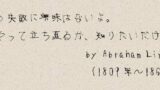 の失敗に興味はないよ。
やって立ち直るか、知りたいだけ
by Abraham Li
(1809年〜186